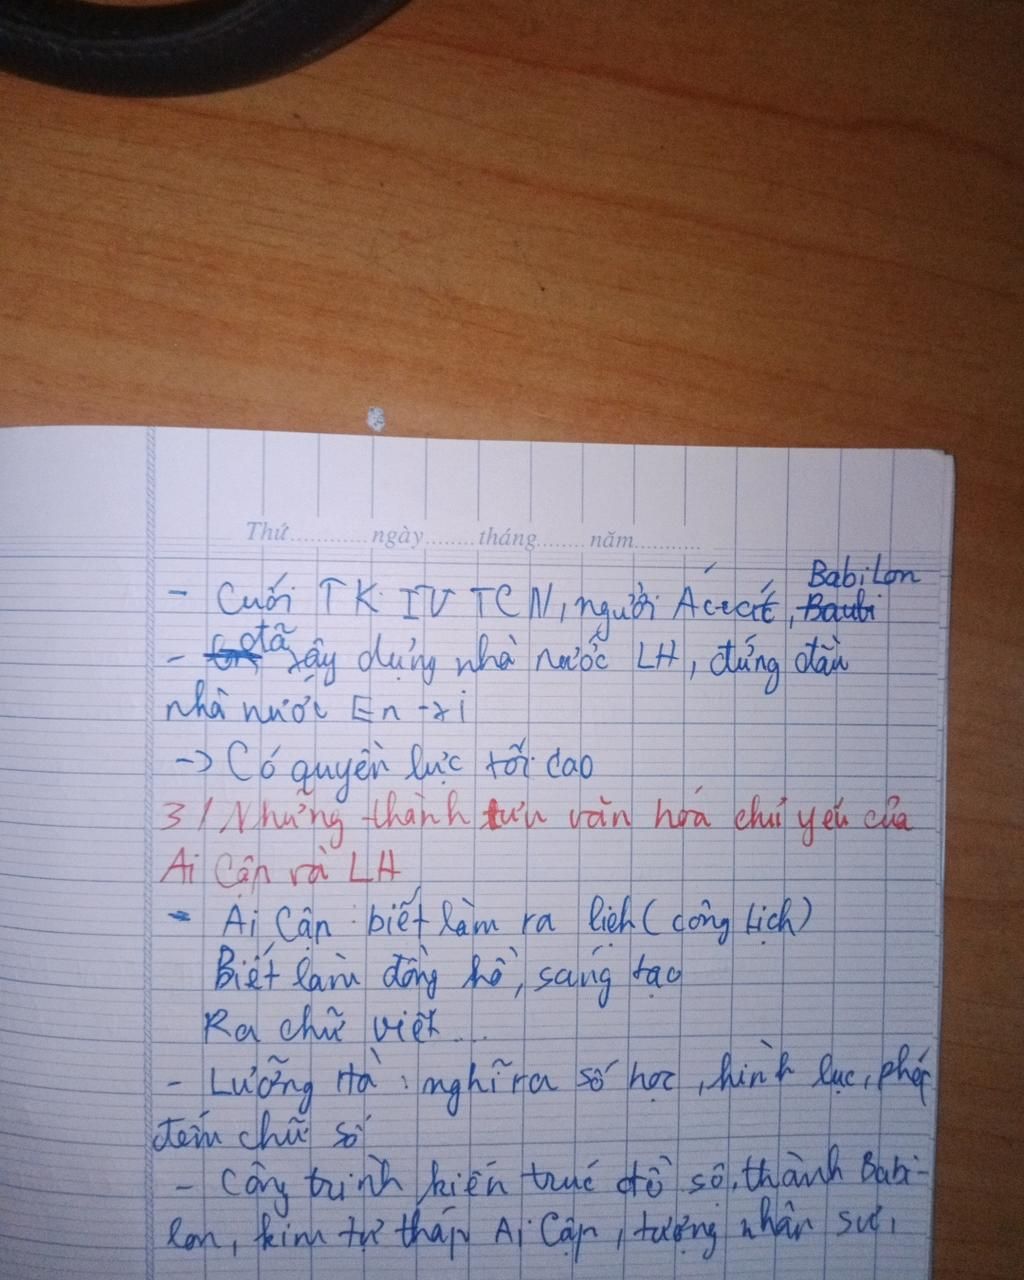 Thứ............ngày.......tháng.......năm...........
- Cuối TK IV TCN, người Acecit, Babilon
- đã xây dựng nhà nước LH, đứng đầu
nhà nước En-xi
-> Có quyền lực tối cao
3/ Những thành tựu văn hoá chủ yếu của
Ai Cập và LH
- Ai Cập : biết làm ra lịch (công lịch)
Biết làm đồng hồ, sáng tạo
Ra chữ viết...
- Lưỡng Hà : nghĩ ra số học, hình lục, phép
đếm chữ số
- Công trình kiến trúc đồ sộ, thành Babi-
lon, kim tự tháp Ai Cập, tượng nhân sư,